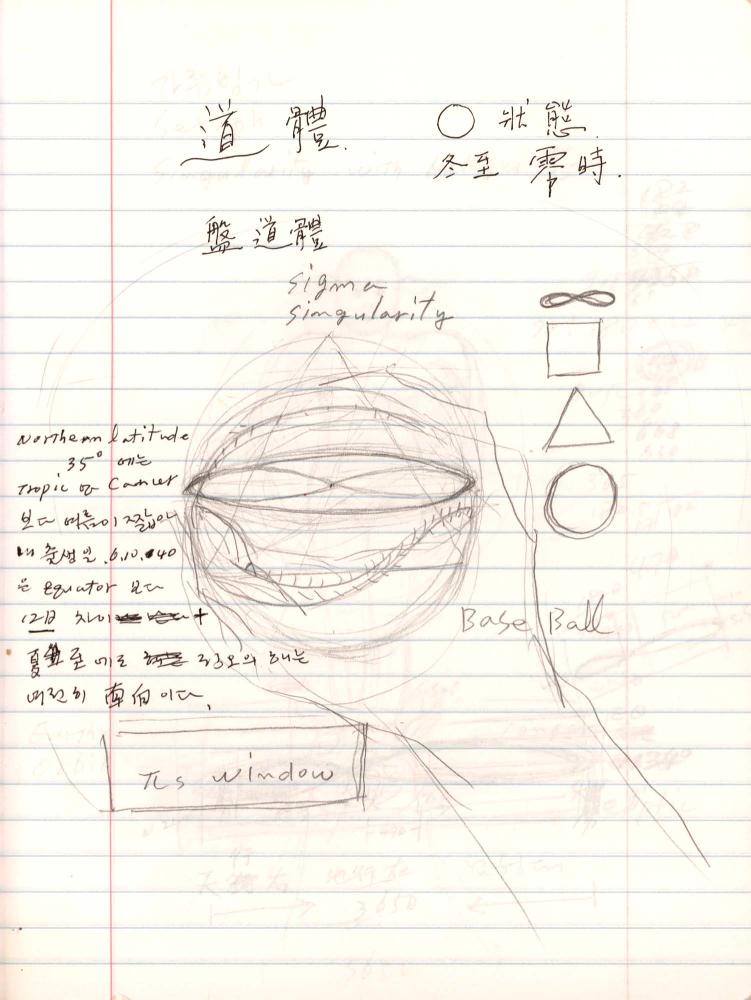 道 體.
○ 狀 態.
冬至 零時.
盤道體
sigma
singularity
Northern latitude
35° 에는
Tropic of Cancer
보다 여름이 짧아
내 출생일 .6.10.40
은 Equator 보다
12日 차이 +
夏至 에도 정오의 해는
여전히 南向이다.
Base Ball
πs window